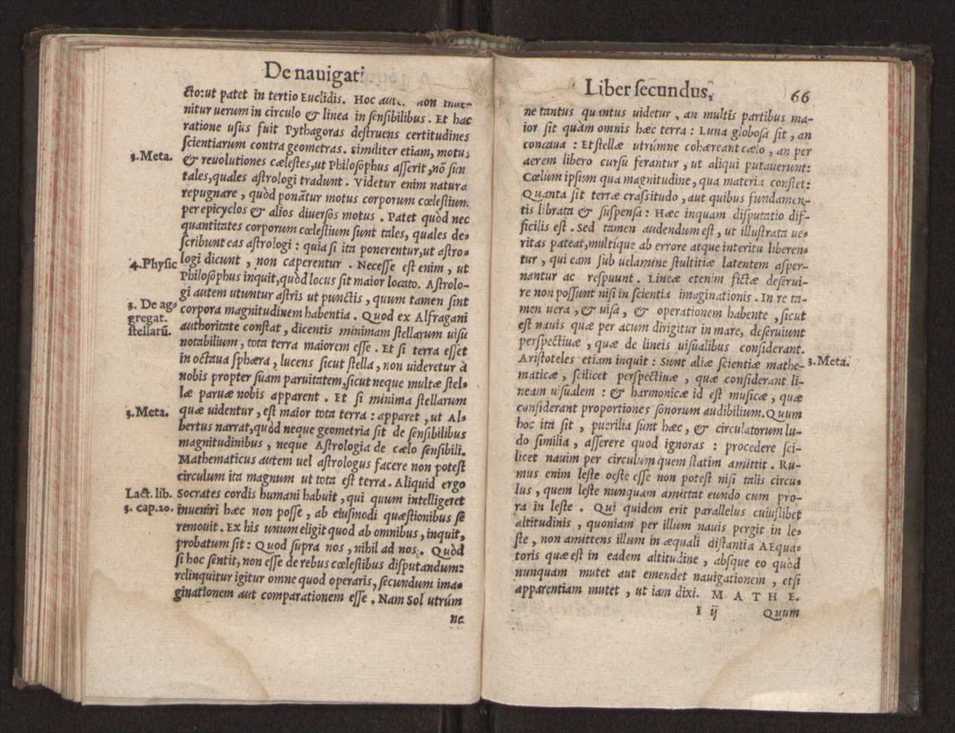 De nauigati
cto:ut patet in tertio Euclidis. Hoc
nitur uerum in circulo & linea in sensibilibus. Et hac
ratione usus fuit Pythagoras destruens certitudines
scientiarum contra geometras. similiter etiam, motus
3.Meta.
& reuolutiones cælestes,ut Philosophus asserit,nõ sun
tales,quales astrologi tradunt. Videtur enim natura
repugnare, quòd ponãtur motus corporum cœlestium,
per epicyclos & alios diuersos motus. Patet quòd nec
quantitates corporum cœlestium sunt tales, quales de-
scribunt eas astrologi: quia si ita ponerentur,ut astro-
4.Physic
logi dicunt, non caperentur. Necesse est enim, ut
Philosophus inquit,quòd locus sit maior locato. Astrolo-
gi autem utuntur astris ut punctis, quum tamen sint
3. De ag-
gregat.
stellarũ.
corpora magnitudinem habentia. Quod ex Alfragani
authoritate constat, dicentis minimam stellarum uisu
notabilium, tota terra maiorem esse. Et si terra esset
in octaua sphæra, lucens sicut stella, non uideretur à
nobis propter suam paruitatem,sicut neque multæ stel-
læ paruæ nobis apparent. Et si minima stellarum
3.Meta.
quæ uidentur, est maior tota terra: apparet, ut Al-
bertus narrat,quòd neque geometria sit de sensibilibus
magnitudinibus, neque Astrologia de cælo sensibili.
Mathematicus autem uel astrologus facere non potest
circulum ita magnum ut tota est terra. Aliquid ergo
Lact. lib.
3. cap.20.
Socrates cordis humani habuit, qui quum intelligeret
inueniri hæc non posse, ab eiusmodi quæstionibus se
remouit. Ex his unum eligit quod ab omnibus, inquit,
probatum sit: Quod supra nos, nihil ad nos. Quòd
si hoc sentit,non esse de rebus cœlestibus disputandum:
relinquitur igitur omne quod operaris, secundum ima-
ginationem aut comparationem esse. Nam Sol utrúm
ne
Liber secundus. 66
ne tantus quantus uidetur, an multis partibus ma-
ior sit quàm omnis hæc terra: Luna globosa sit, an
concaua: Et stellæ utrúmne cohæreant cælo, an per
aerem libero cursu ferantur, ut aliqui putauerunt:
Cælum ipsum qua magnitudine, qua materia constet:
Quanta sit terræ crassitudo, aut quibus fundamen-
tis librata & suspensa: Hæc inquam disputatio dif-
ficilis est. Sed tamen audendum est, ut illustrata ue-
ritas pateat,multique ab errore atque interitu liberen-
tur, qui eam sub uelamine stultitiæ latentem asper-
nantur ac respuunt. Lineæ etenim fictæ deserui-
re non possunt nisi in scientia imaginationis. In re ta-
men uera, & uisa, & operationem habente, sicut
est nauis quæ per acum dirigitur in mare, deseruiunt
perspectiuæ, quæ de lineis uisualibus considerant.
Aristoteles etiam inquit: Sunt aliæ scientiæ mathe-
3.Meta.
maticæ, scilicet perspectiuæ, quæ considerant li-
neam uisualem: & harmonicæ id est musicæ, quæ
considerant proportiones sonorum audibilium. Quum
hoc ita sit, puerilia sunt hæc, & circulatorum lu-
do similia, asserere quod ignoras: procedere sci-
licet nauim per circulum quem statim amittit. Ru-
mus enim leste oeste esse non potest nisi talis circu-
lus, quem leste nunquam amittat eundo cum pro-
ra in leste. Qui quidem erit parallelus cuiuslibet
altitudinis, quoniam per illum nauis pergit in le-
ste, non amittens illum in æquali distantia AEqua-
toris quæ est in eadem altitudine, absque eo quòd
nunquam mutet aut emendet nauigationem, etsi
apparentiam mutet, ut iam dixi. MATHE.
I ij Quum